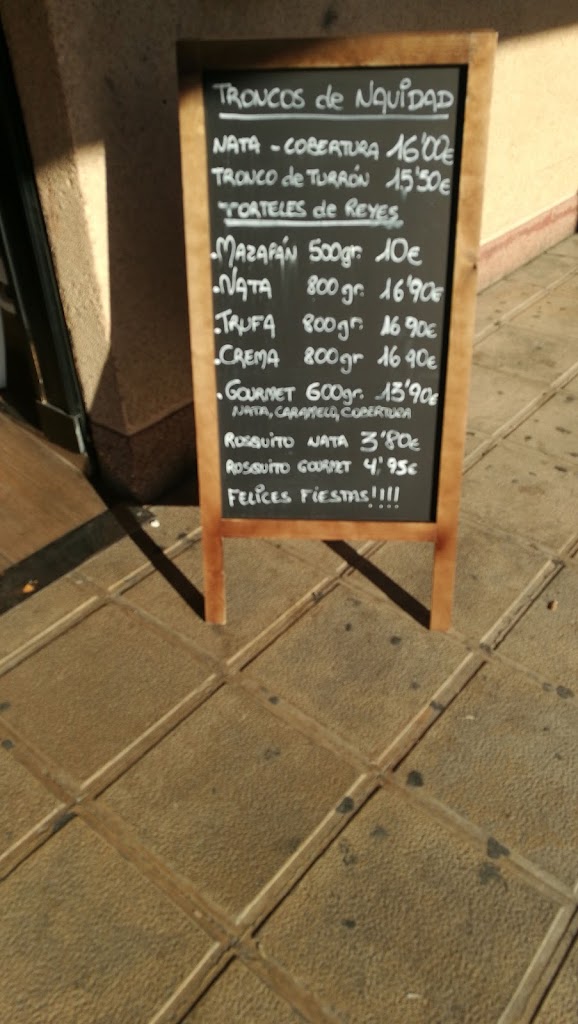 TRONCOS de NAVIDAD
NATA - COBERTURA 16'00€
TRONCO de TURRÓN 15'50€
TORTELES de REYES
.MAZAPÁN 500gr. 10€
.NATA 800gr. 16'90€
.TRUFA 800gr. 16 90€
.CREMA 800gr 16 90€
.GOURMET 600gr. 13'90€
NATA, CARAMELO, COBERTURA
ROSQUITO NATA 3'80€
ROSQUITO GOURMET 4'95€
FELICES FIESTAS!!!!